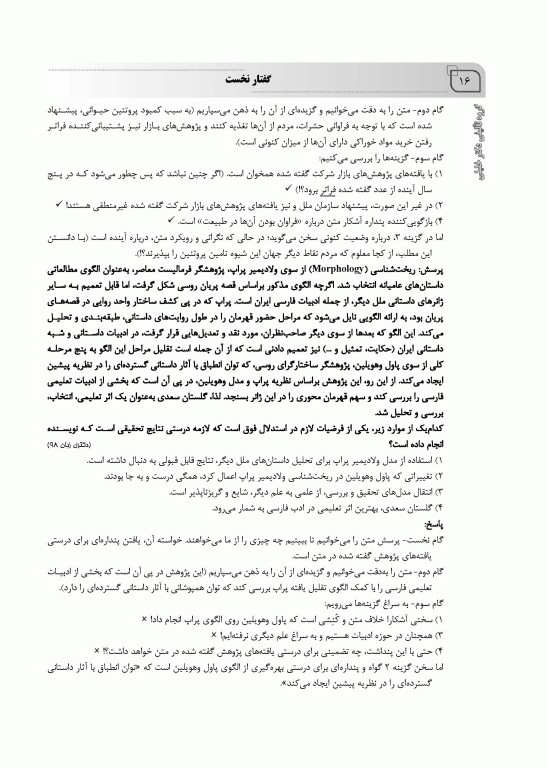 ۱۶
گفتار نخست
گام دوم- متن را به دقت می‌خوانیم و گزیده‌ای از آن را به ذهن می‌سپاریم (به سبب کمبود پروتئین حیوانی، پیشنهاد
شده است که با توجه به فراوانی حشرات، مردم از آن‌ها تغذیه کنند و پژوهش‌های بازار نیز پشتیبانی‌کننده فراتر
رفتن خرید مواد خوراکی دارای آن‌ها از میزان کنونی است).
گام سوم- گزینه‌ها را بررسی می‌کنیم:
۱) با یافته‌های پژوهش‌های بازار شرکت گفته شده همخوان است. (اگر چنین نباشد که پس چطور می‌شود که در پنج
سال آینده از عدد گفته شده فراتر برود؟!) ✓
۲) در غیر این صورت، پیشنهاد سازمان ملل و نیز یافته‌های پژوهش‌های بازار شرکت گفته شده غیرمنطقی هستند! ✓
۴) بازگویی‌کننده پنداره آشکار متن درباره «فراوان بودن آن‌ها در طبیعت» است. ✓
اما در گزینه ۳، درباره وضعیت کنونی سخن می‌گوید؛ در حالی که نگرانی و رویکرد متن، درباره آینده است (با دانستن
این مطلب، از کجا معلوم که مردم نقاط دیگر جهان این شیوه تامین پروتئین را بپذیرند؟!).
پرسش: ریخت‌شناسی (Morphology) از سوی ولادیمیر پراپ، پژوهشگر فرمالیست معاصر، به‌عنوان الگوی مطالعاتی
داستان‌های عامیانه انتخاب شد. اگرچه الگوی مذکور براساس قصه پریان روسی شکل گرفت، اما قابل تعمیم به سایر
ژانرهای داستانی ملل دیگر، از جمله ادبیات فارسی ایران است. پراپ که در پی کشف ساختار واحد روایی در قصه‌های
پریان بود، به ارائه الگویی نایل می‌شود که مراحل حضور قهرمان را در طول روایت‌های داستانی، طبقه‌بندی و تحلیل
می‌کند. این الگو که بعدها از سوی دیگر صاحب‌نظران، مورد نقد و تعدیل‌هایی قرار گرفت، در ادبیات داستانی و شبه
داستانی ایران (حکایت، تمثیل و ...) نیز تعمیم دادنی است که از آن جمله است تقلیل مراحل این الگو به پنج مرحله
کلی از سوی پاول وهویلین، پژوهشگر ساختارگرای روسی، که توان انطباق با آثار داستانی گسترده‌ای را در نظریه پیشین
ایجاد می‌کند. از این رو، این پژوهش براساس نظریه پراپ و مدل وهویلین، در پی آن است که بخشی از ادبیات تعلیمی
فارسی را بررسی کند و سهم قهرمان محوری را در این ژانر بسنجد. لذا، گلستان سعدی به‌عنوان یک اثر تعلیمی، انتخاب،
بررسی و تحلیل شد.
کدام‌یک از موارد زیر، یکی از فرضیات لازم در استدلال فوق است که لازمه درستی نتایج تحقیقی است که نویسنده
انجام داده است؟ (دکتری زبان ۹۸)
۱) استفاده از مدل ولادیمیر پراپ برای تحلیل داستان‌های ملل دیگر، نتایج قابل قبولی به دنبال داشته است.
۲) تغییراتی که پاول وهویلین در ریخت‌شناسی ولادیمیر پراپ اعمال کرد، همگی درست و به جا بودند.
۳) انتقال مدل‌های تحقیق و بررسی، از علمی به علم دیگر، شایع و گریزناپذیر است.
۴) گلستان سعدی، بهترین اثر تعلیمی در ادب فارسی به شمار می‌رود.
پاسخ:
گام نخست- پرسش متن را می‌خوانیم تا ببینیم چه چیزی را از ما می‌خواهند. خواسته آن، یافتن پنداره‌ای برای درستی
یافته‌های پژوهش گفته شده در متن است.
گام دوم- متن را به‌دقت می‌خوانیم و گزیده‌ای از آن را به ذهن می‌سپاریم (این پژوهش در پی آن است که بخشی از ادبیات
تعلیمی فارسی را با کمک الگوی تقلیل یافته پراپ بررسی کند که توان همپوشانی با آثار داستانی گسترده‌ای را دارد).
گام سوم- به سراغ گزینه‌ها می‌رویم:
۱) سخنی آشکارا خلاف متن و کُنِشی است که پاول وهویلین روی الگوی پراپ انجام داد! ×
۳) همچنان در حوزه ادبیات هستیم و به سراغ علم دیگری نرفته‌ایم! ×
۴) حتی با این پنداشت، چه تضمینی برای درستی یافته‌های پژوهش گفته شده در متن خواهد داشت؟! ×
اما سخن گزینه ۲ گواه و پنداره‌ای برای درستی بهره‌گیری از الگوی پاول وهویلین است که «توان انطباق با آثار داستانی
گسترده‌ای را در نظریه پیشین ایجاد می‌کند».